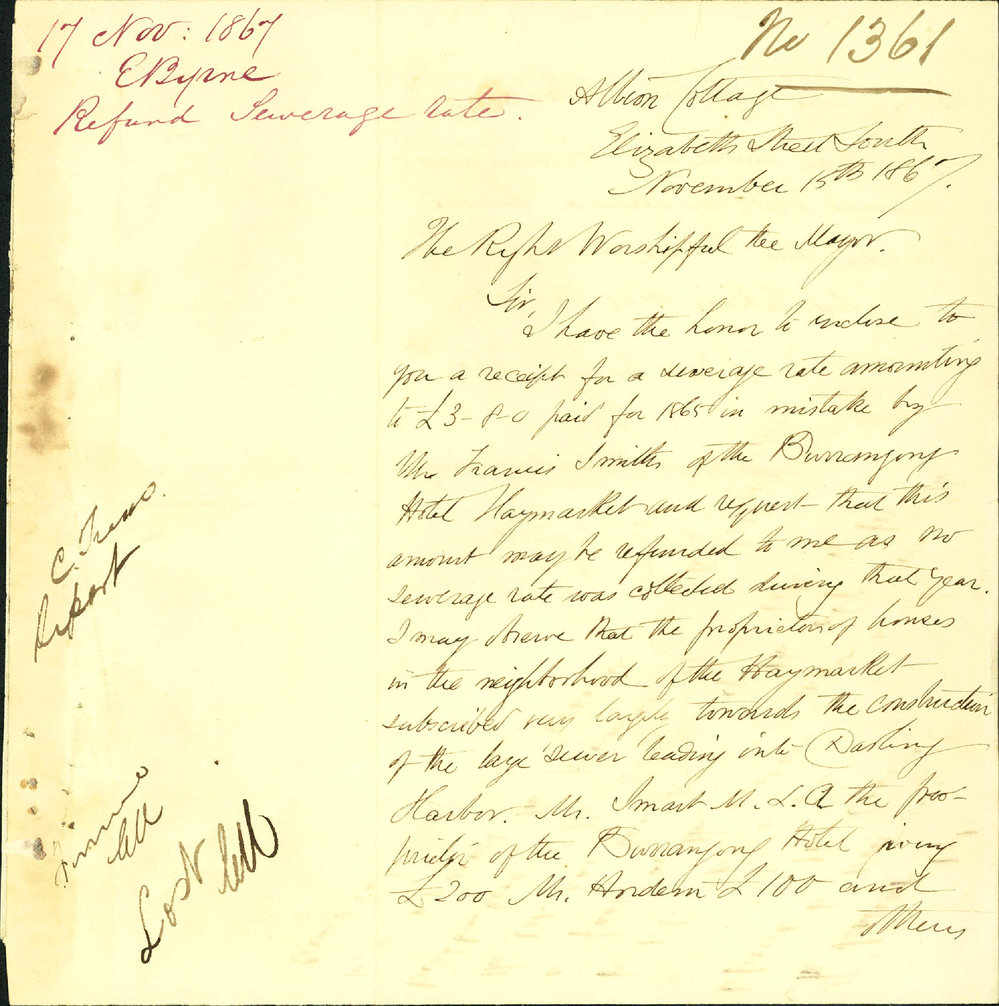 17 Nov: 1867
E Byrne
Refund Sewerage rate.
No 1361
Albion Cottage
Elizabeth Street South
November 15th 1867.
The Right Worshipful the Mayor.
Sir,
I have the honor to inclose to
you a receipt for a sewerage rate amounting
to £3-8-0 paid for 1865 in mistake by
Mr Francis Smith of the Burrangong
Hotel Haymarket and request that this
amount may be refunded to me as no
sewerage rate was collected during that year.
I may observe that the proprietors of houses
in the neighborhood of the Haymarket
subscribed very largely towards the construction
of the large sewer leading into Darling
Harbor. Mr. Smart M.L.A the proo-
prietor of the Burrangong Hotel giving
£200 Mr. Hordern £100 and
others
C. Treas
Report